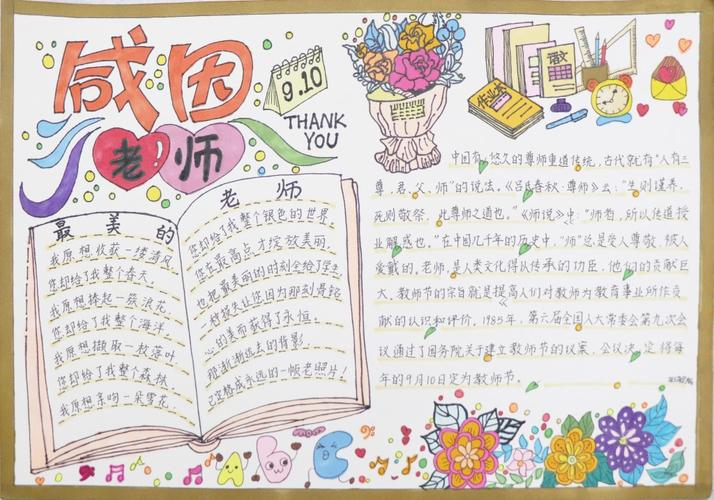 感恩
老师
9.10
THANK
YOU
作业本
教
最美的
老师
我原想收获一缕清风,
您却给了我整个春天,
我原想捧起一簇浪花,
您却给了我整个海洋,
我原想撷取一枚落叶
您却给了我整个森林,
我原想亲吻一朵雪花,
您却给了我整个银色的世界
您在最高点才绽放美丽,
也把最美丽的时刻全给了学生,
心的美而获得了永恒,
渐渐远去的背影,
已定格成永远的一帧老照片!
中国有悠久的尊师重道传统,古代就有"人有三
尊,君、父、师"的说法。《吕氏春秋·尊师》云:"生则谨养,
死则敬祭,此尊师之道也。"《师说》中:"师者,所以传道授
业解惑也。"在中国几千年的历史中,"师"总是受人尊敬,被人
爱戴的。老师,是人类文化得以传承的功臣,他们的贡献巨
大。教师节的宗旨就是提高人们对教师为教育事业所作贡
献的认识和评价。1985年,第六届全国人大常委会第九次会
议通过了国务院关于建立教师节的议案,会议决定将每
年的9月10日定为教师节。
A B C